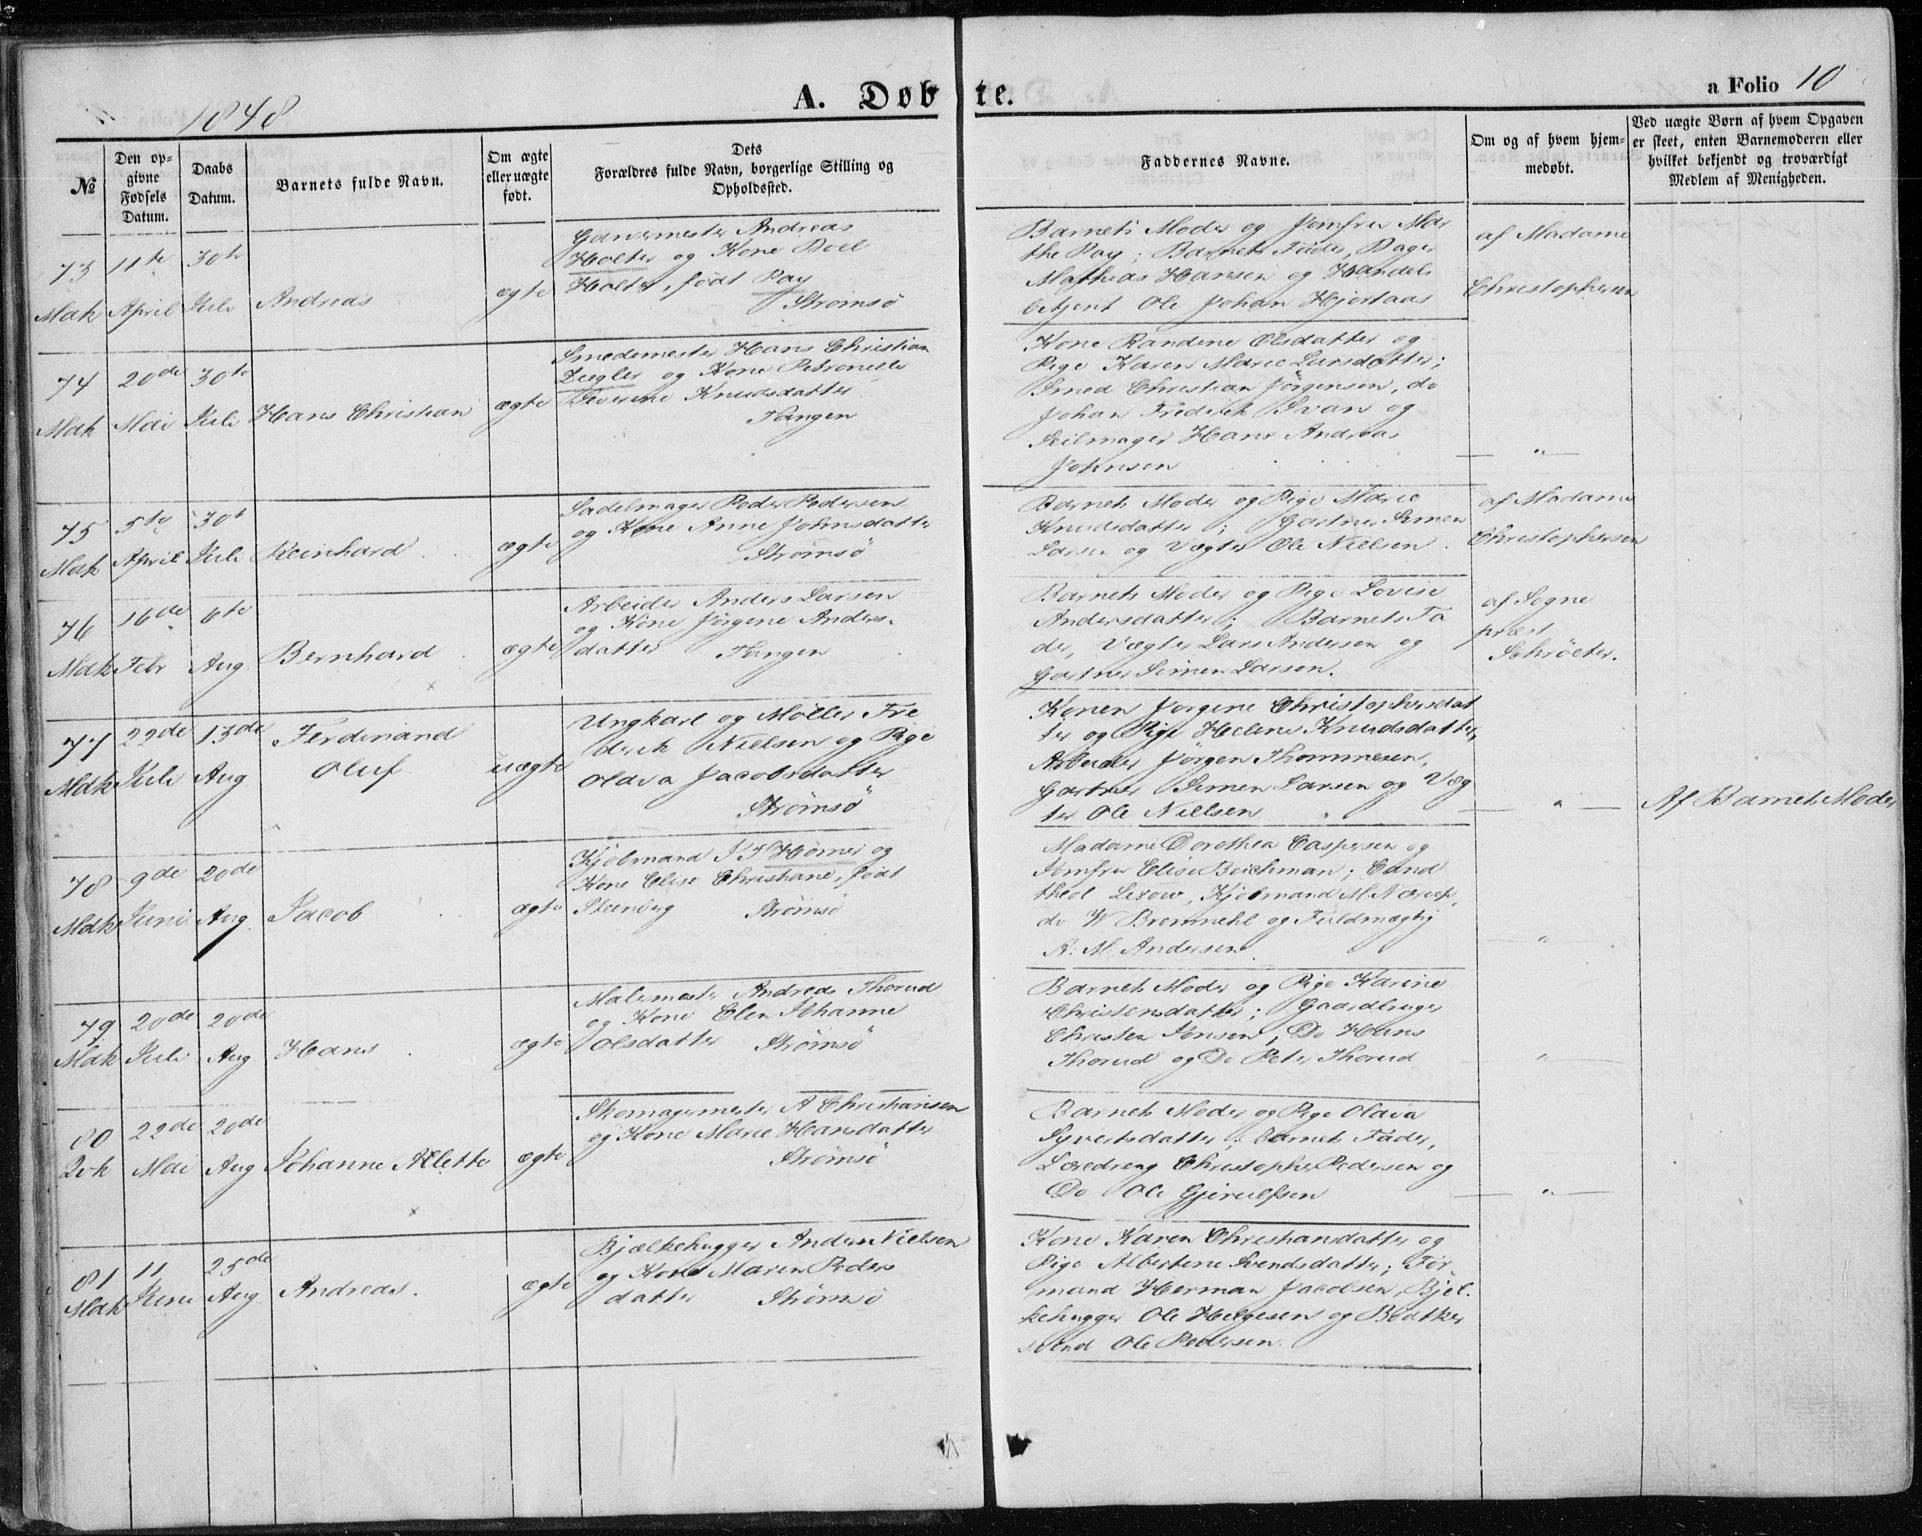 1848
A. Døbte.
a Folio 10
№
Den opgivne Fødsels Datum.
Daabs Datum.
Barnets fulde Navn.
Om ægte eller uægte født.
Dets Forældres fulde Navn, borgerlige Stilling og Opholdssted.
Faddernes Navne.
Om og af hvem hjemmedøbt.
Ved uægte Børn af hvem Opgaven er skeet, enten Barnemoderen eller hvilket bekjendt og troværdigt Medlem af Menigheden.
73 Mdk
11te April
30te Juli
Andreas
ægte
Andreas
Holter og Kone Boel
Holter, født Pay
Strømsö
Barnets Moder og Jomfru Mar
the Pay; Barnets Fader,
Mathias Hansen og Handels
betjent Ole Johan Hjortaas
af Madame
Christophersen
74 Mdk
20de Mai
30te Juli
Hans Christian
ægte
Smedemester Hans Christian
Ziegler og Kone Petronelle
Severine Knudsdatter
Tangen
Kone Randine Olsdatter og
Pige Karen Marie Larsdatter;
Smed Christian Jörgensen, do
Johan Fredrik Svan og
Seilmager Hans Andreas
Johnsen
"
75 Mdk
5te April
30t Juli
Reinhard
ægte
Sadelmager Peder Pedersen
og Kone Anne Johnsdatter
Strömsö
Barnets Moder og Pige Marie
Knudsdatter; Gartner Simen
Larsen og Vægter Ole Nielsen
af Madame
Christophersen
76 Mdk
16de Febr
6te Aug
Bernhard
ægte
Arbeider Anders Larsen
og Kone Jörgine Anders-
datter Tangen
Barnets Moder og Pige Lovise
Andersdatter; Barnets Fa
der, Vægter Lars Andersen og
Gartner Simen Larsen.
af Sogne
præst
Schröeter.
77 Mdk
22de Juli
13de Aug
Ferdinand
Oluf
uægte
Ungkarl og Möller Fre
derik Nielsen og Pige
Olava Jacobsdatter
Strömsö
Konen Jörgine Christophersdat
ter og Pige Helene Knudsdatter,
Arbeider Jörgen Thommesen,
Gartner Simen Larsen og Væg
ter Ole Nielsen
"
Af Barnets Moder
78 Mdk
9de Juni
20de Aug
Jacob
ægte
Kjöbmand J F Hörner og
Kone Elise Christiane, født
Steenberg Strømsö
Madame Dorothea Caspersen og
Jomfru Elise Beichman; Cand
theol Lexow, Kjöbmand M. Nærup,
do W Bremmehl og Fuldmægtig
A. M. Andersen.
"
79 Mdk
20de Juli
20de Aug
Hans
ægte
Malemester Andreas Thorud
og Kone Elen Johanne
Olsdatter Strömsö
Barnets Moder og Pige Karine
Christensdatter; Gaardbruger
Christen Jonsen, Do Hans
Thorud og Do Peter Thorud
"
80 Qvk
22de Mai
20de Aug
Johanne Alette
ægte
Skomagermester A Christiansen
og Kone Marie Hansdatter
Strömsö
Barnets Moder og Pige Olava
Syvertsdatter; Barnets Fader,
Læredreng Christopher Pedersen og
Do Ole Gjerulfsen
"
81 Mdk
11 Juni
25de Aug
Andreas.
ægte
Bjælkehugger Anders Nielsen
og Kone Maren Peders
datter Strömsö
Kone Karen Christiansdatter og
Pige Albertine Svendsdatter; For
mand Herman Jacobsen, Bjel-
kehugger Ole Helgesen og Bödtker
svend Ole Pedersen.